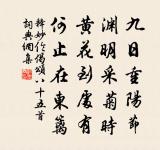 九日重陽節
淵明采菊時
黃花到處有
何止在東籬
釋妙伦偈頌八十五首
詞典網集